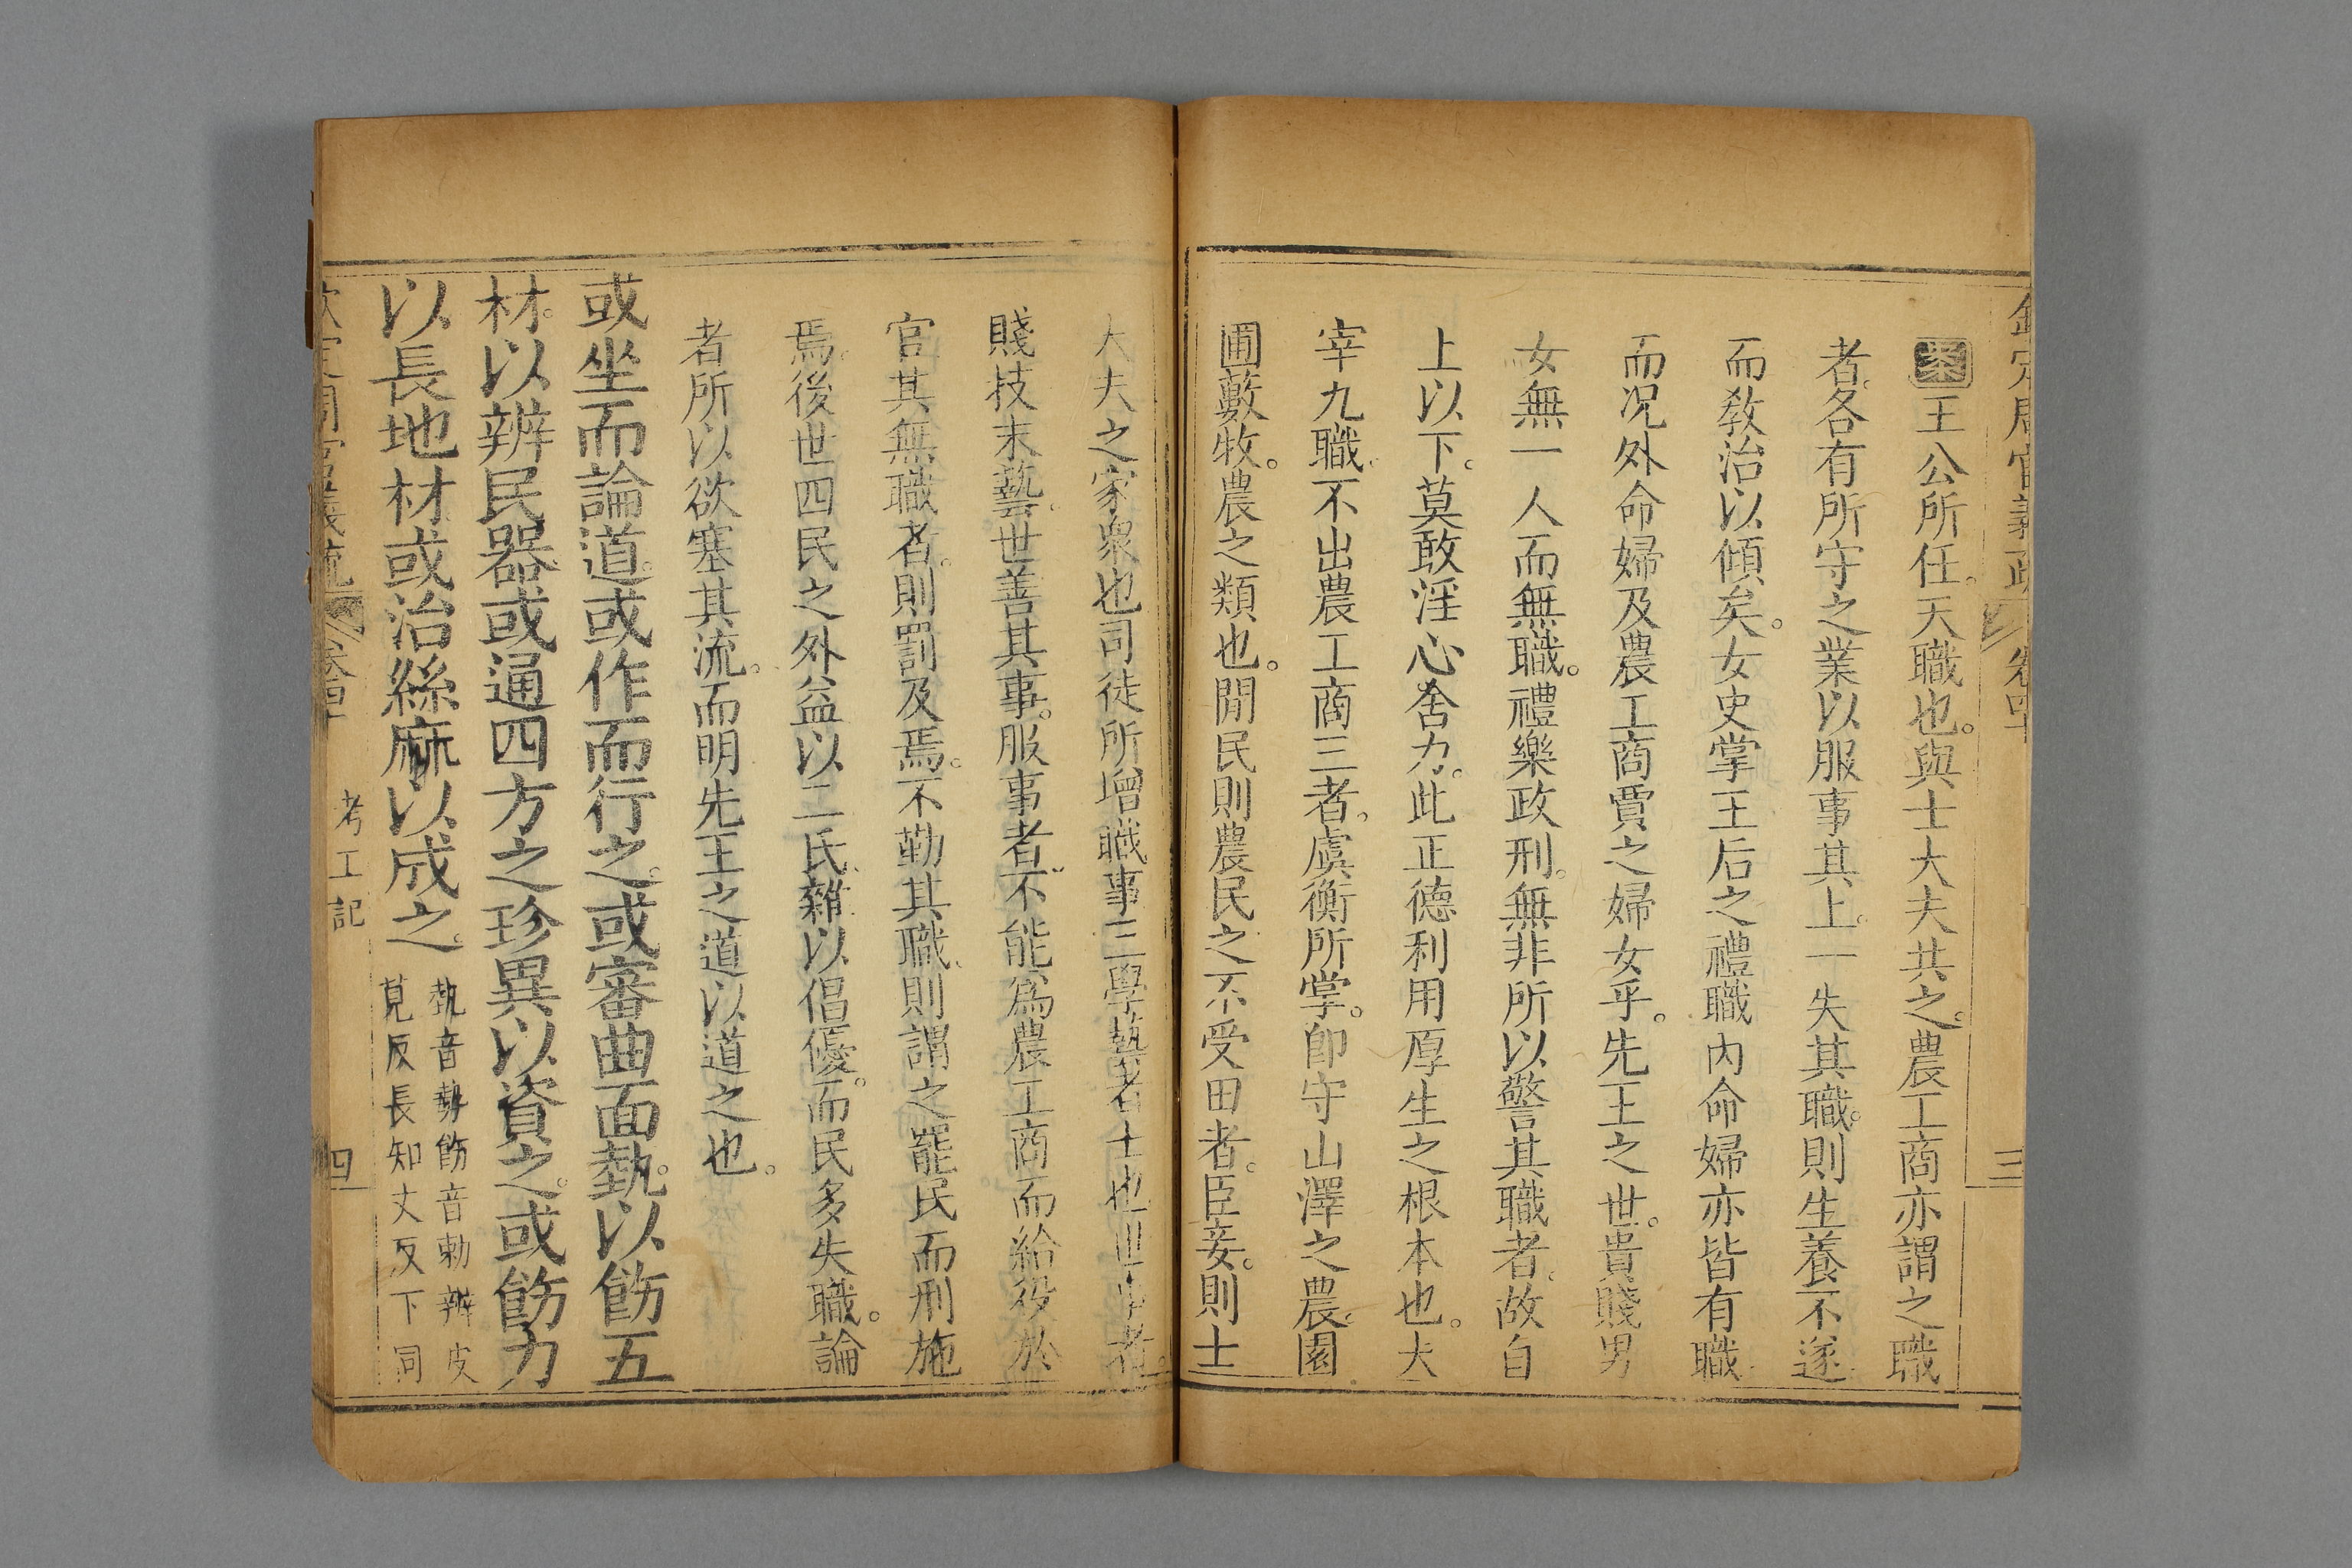 欽定周官義疏 卷四十 三
案王公所任。天職也。與士大夫共之。農工商亦謂之職
者。各有所守之業以服事其上。一失其職。則生養不遂
而敎治以傾矣。女史掌王后之禮職內命婦亦皆有職
而况外命婦及農工商賈之婦女乎。先王之世。貴賤男
女無一人而無職。禮樂政刑。無非所以警其職者。故自
上以下。莫敢淫心舍力。此正德利用厚生之根本也。大
宰九職。不出農工商三者。虞衡所掌。卽守山澤之農。園
圃藪牧。農之類也。閒民則農民之不受田者。臣妾。則士
大夫之家衆也司徒所增職事三學藝者士也世事者。
賤技末藝。世善其事。服事者。不能爲農工商而給役於
官其無職者。則罰及焉。不勤其職。則謂之罷民而刑施
焉。後世四民之外益以二氏。雜以倡優。而民多失職。論
者所以欲塞其流。而明先王之道以道之也。
或坐而論道。或作而行之。或審曲面埶。以飭五
材。以辨民器或通四方之珍異以資之。或飭力
以長地材或治絲麻以成之。埶音勢飭音勅辨皮
莧反長知丈反下同
欽定周官義疏 卷四十 考工記 四